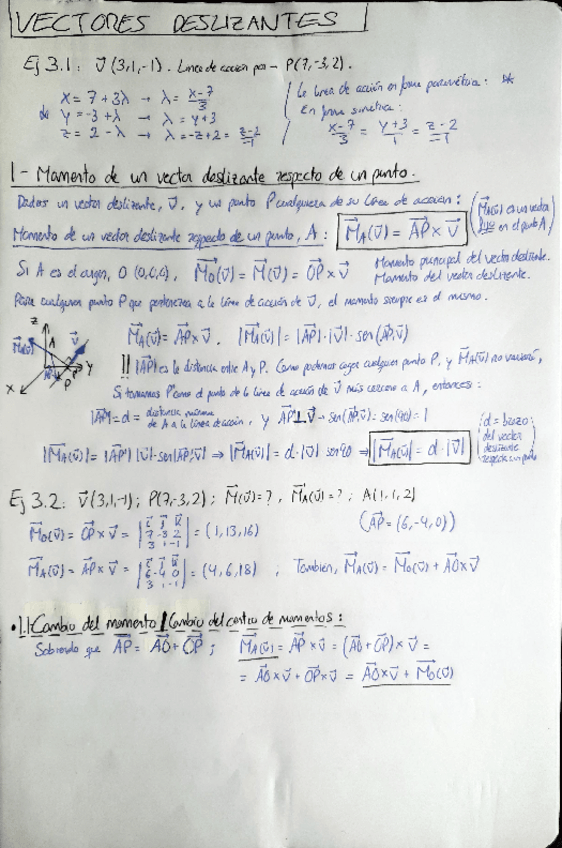 VECTORES DESLIZANTES
Ej 3.1: V⃗(3,1,-1). Línea de acción por P(7,-3,2).
x = 7 + 3λ → λ = (x-7)/3
y = -3 + λ → λ = y+3
z = 2 - λ → λ = -z+2 = (z-2)/-1
La línea de acción en forma paramétrica: **
En forma simétrica:
(x-7)/3 = (y+3)/1 = (z-2)/-1
1- Momento de un vector deslizante respecto de un punto.
Dados un vector deslizante, V⃗, y un punto P cualquiera de su línea de acción:
Momento de un vector deslizante respecto de un punto, A: M⃗A(V⃗) = AP⃗ × V⃗
(M⃗A(V⃗) es un vector fijo en el punto A)
Si A es el origen, O (0,0,0), M⃗O(V⃗) = M⃗(V⃗) = OP⃗ × V⃗
Momento principal del vector deslizante.
Momento del vector deslizante.
Para cualquier punto P que pertenezca a la línea de acción de V⃗, el momento siempre es el mismo.
z A V⃗ M⃗A(V⃗) y x P P'
M⃗A(V⃗) = AP⃗ × V⃗. |M⃗A(V⃗)| = |AP⃗|·|V⃗|·sen(AP⃗,V⃗)
!! |AP⃗| es la distancia entre A y P. Como podemos coger cualquier punto P, y M⃗A(V⃗) no variará,
Si tomamos P' como el punto de la línea de acción de V⃗ más cercano a A, entonces:
|AP'⃗| = d = distancia mínima de A a la línea de acción, y AP'⃗ ⊥ V⃗ → sen(AP'⃗,V⃗) = sen(90) = 1
|M⃗A(V⃗)| = |AP'⃗| |V⃗| sen(AP'⃗,V⃗) → |M⃗A(V⃗)| = d·|V⃗| sen90 → |M⃗A(V⃗)| = d·|V⃗|
(d = brazo del vector deslizante respecto a un punto)
Ej 3.2: V⃗(3,1,-1); P(7,-3,2); M⃗(V⃗)=?, M⃗A(V⃗)=?; A(1,1,2)
M⃗O(V⃗) = OP⃗ × V⃗ = |i⃗ j⃗ k⃗; 7 -3 2; 3 1 -1| = (1,13,16)
(AP⃗ = (6,-4,0))
M⃗A(V⃗) = AP⃗ × V⃗ = |i⃗ j⃗ k⃗; 6 -4 0; 3 1 -1| = (4,6,18) ; También, M⃗A(V⃗) = M⃗O(V⃗) + AO⃗ × V⃗
• 1.1: Cambio del momento / Cambio del centro de momentos:
Sabiendo que AP⃗ = AO⃗ + OP⃗; M⃗A(V⃗) = AP⃗ × V⃗ = (AO⃗ + OP⃗) × V⃗ =
= AO⃗ × V⃗ + OP⃗ × V⃗ = AO⃗ × V⃗ + M⃗O(V⃗)